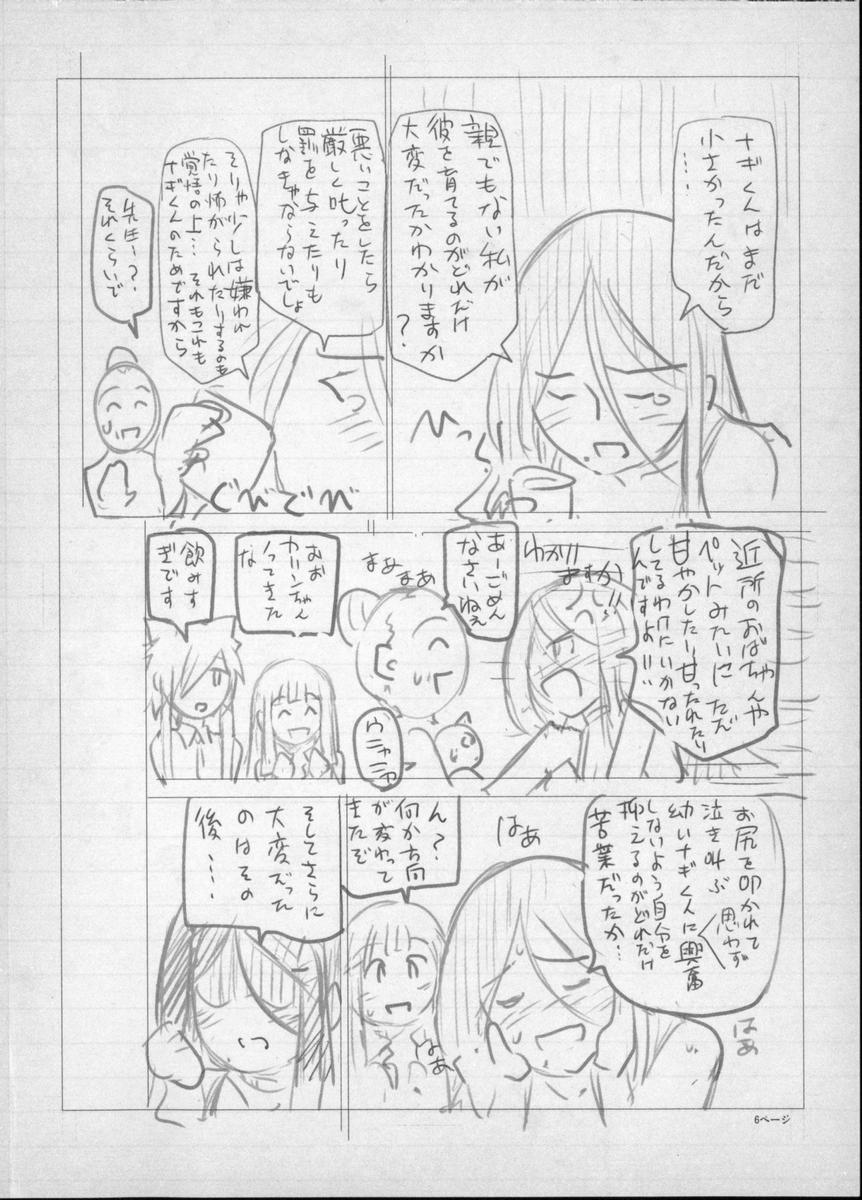 ナギくんはまだ
小さかったんだから
…
親でもない私が
彼を育てるのがどれだけ
大変だったかわかりますか
?
悪いことをしたら
厳しく叱ったり
罰を与えたりも
しなきゃならないでしょ
そりゃ少しは嫌われ
たり怖がられたりするのも
覚悟の上… それもこれも
ナギくんのためですから
先生〜?
それくらいで
ひっく
ぐびぐび
近所のおばちゃんや
ペットみたいにただ
甘やかしたり甘ったれたり
してるわけにいかない
んですよ!!!
わかり
ますか!!
あーごめん
なさいねぇ
まぁまぁ
ウニャニャ
おお
カリンちゃん
のってきた
な
飲みす
ぎです
はぁ
はぁ
はぁ
ん?
何か方向
が変わって
きたぞ
そしてさらに
大変だった
のはその
後…
6ページ